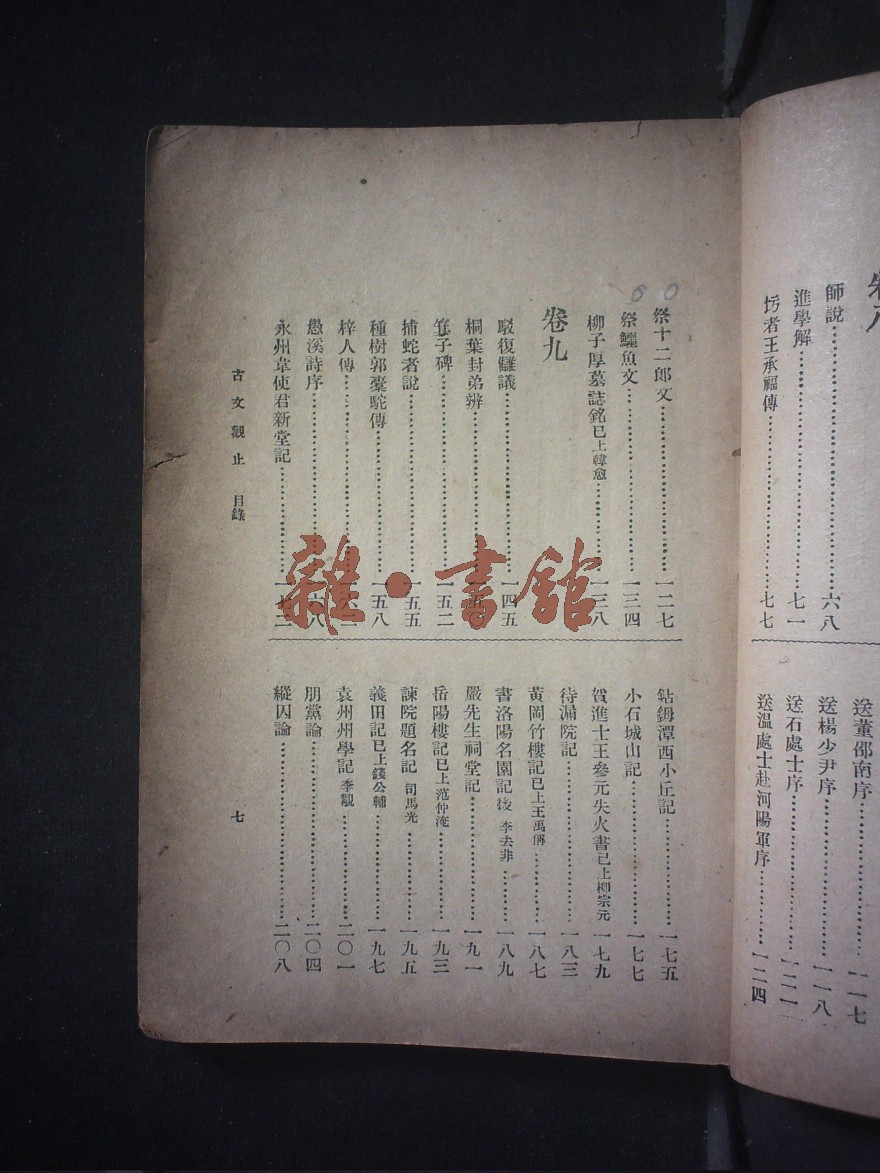 卷八
師說……六八
進學解……七一
圬者王承福傳……七七
送董邵南序……一一七
送楊少尹序……一一八
送石處士序……一二一
送溫處士赴河陽軍序……一二四
祭十二郎文……一二七
祭鱷魚文……一三四
柳子厚墓誌銘已上韓愈……一三八
卷九
駁復讎議……一四五
桐葉封弟辨……一五〇
箕子碑……一五二
捕蛇者說……一五五
種樹郭橐駝傳……一五八
梓人傳……一六二
愚溪詩序……一六八
永州韋使君新堂記……一七二
鈷鉧潭西小丘記……一七五
小石城山記……一七七
賀進士王參元失火書已上柳宗元 一七九
待漏院記……一八三
黃岡竹樓記已上王禹偁……一八七
書洛陽名園記後 李去非……一八九
嚴先生祠堂記……一九一
岳陽樓記已上范仲淹……一九三
諫院題名記 司馬光……一九五
義田記已上錢公輔……一九七
袁州州學記 李覯……二〇一
朋黨論……二〇四
縱囚論……二〇八
古文觀止 目錄
七
雜·書館